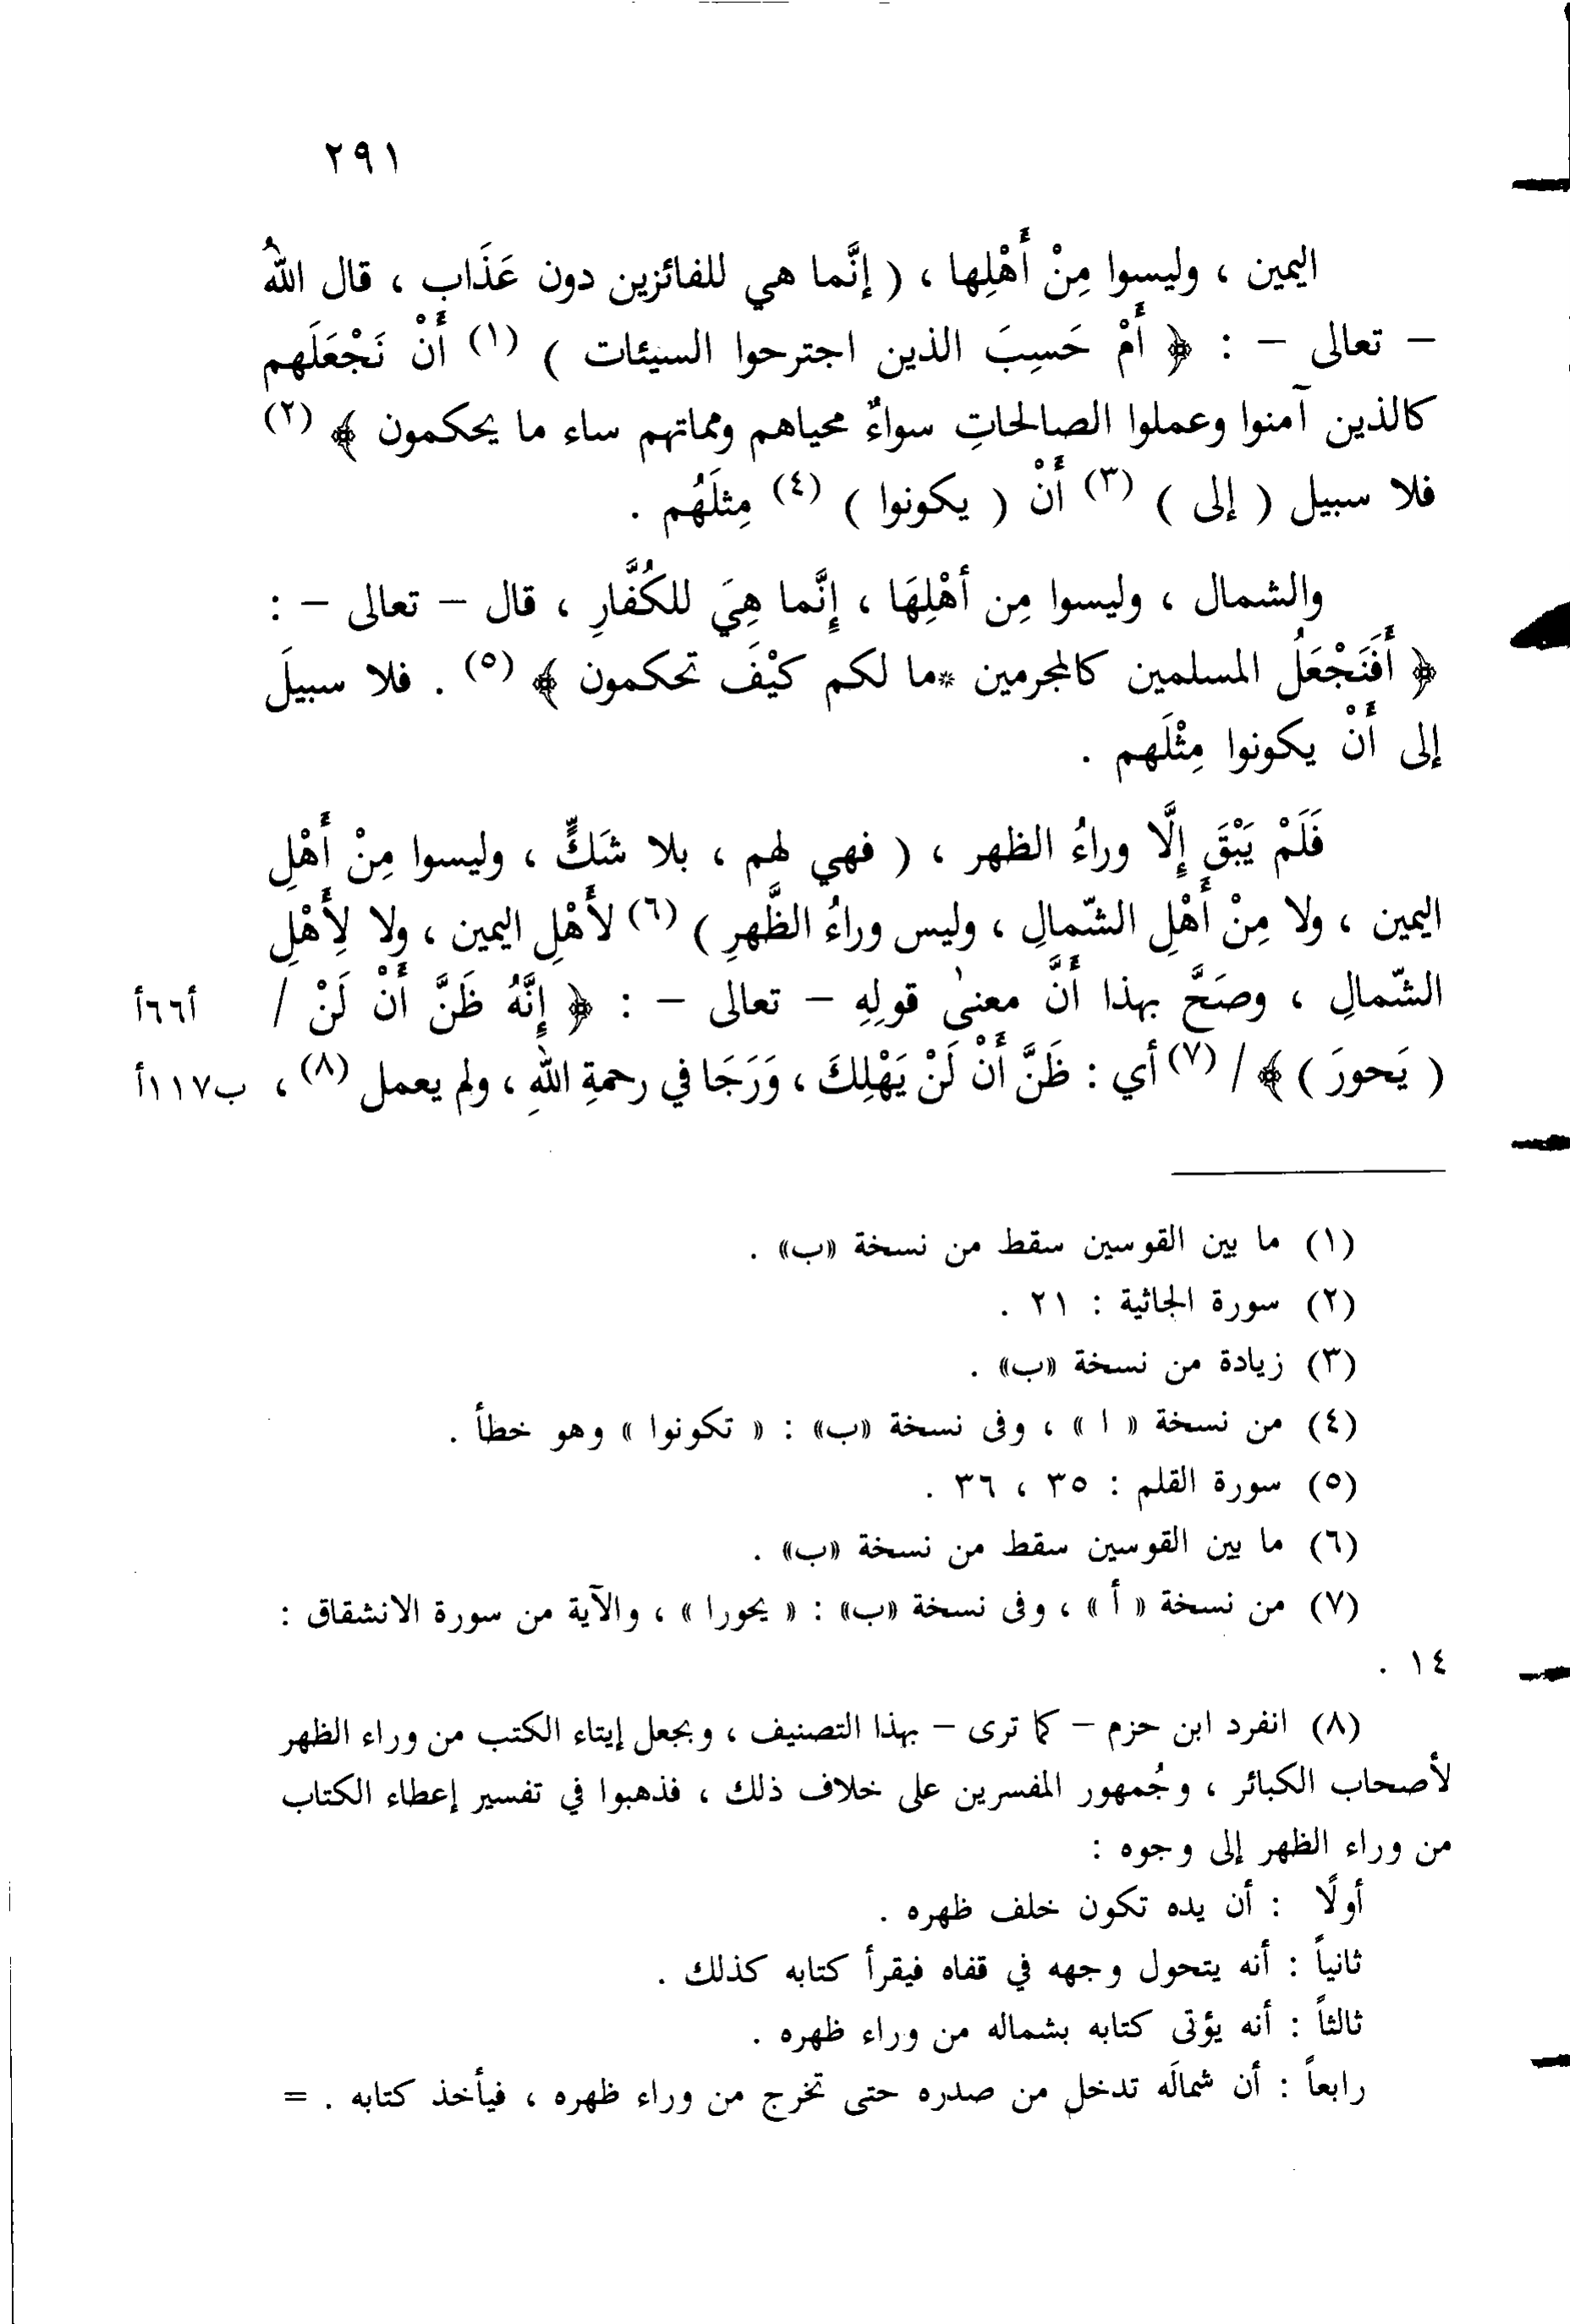 ٢٩١
اليمين ، وليسوا مِنْ أَهْلِها ، ( إنَّما هي للفائزين دون عَذَاب ، قال اللهُ
– تعالى – : ﴿ أَمْ حَسِبَ الذين اجترحوا السيئات ) (١) أَنْ نَجْعَلَهم
كالذين آمنوا وعملوا الصالحاتِ سواءٌ محياهم ومماتهم ساء ما يحكمون ﴾ (٢)
فلا سبيل ( إلى ) (٣) أَنْ ( يكونوا ) (٤) مِثلَهُم .
والشمال ، وليسوا مِن أهْلِهَا ، إِنَّما هِيَ للكُفَّارِ ، قال – تعالى – :
﴿ أَفَنَجْعَلُ المسلمين كالمجرمين * ما لكم كيْفَ تحكمون ﴾ (٥) . فلا سبيلَ
إلى أَنْ يكونوا مِثْلَهم .
فَلَمْ يَبْقَ إِلَّا وراءُ الظهر ، ( فهي لهم ، بلا شَكٍّ ، وليسوا مِنْ أَهْلِ
اليمين ، ولا مِنْ أَهْلِ الشّمالِ ، وليس وراءُ الظَّهرِ ) (٦) لأَهْلِ اليمين ، ولا لِأَهْلِ
الشّمالِ ، وصَحَّ بهذا أَنَّ معنىٰ قولِهِ – تعالى – : ﴿ إِنَّهُ ظَنَّ أَنْ لَنْ / أ٦٦أ
( يَحورَ ) ﴾ / (٧) أي : ظَنَّ أَنْ لَنْ يَهْلِكَ ، وَرَجَا في رحمةِ اللهِ ، ولم يعمل (٨) ، ب١١٧أ
(١) ما بين القوسين سقط من نسخة «ب» .
(٢) سورة الجاثية : ٢١ .
(٣) زيادة من نسخة «ب» .
(٤) من نسخة « ا » ، وفى نسخة «ب» : « تكونوا » وهو خطأ .
(٥) سورة القلم : ٣٥ ، ٣٦ .
(٦) ما بين القوسين سقط من نسخة «ب» .
(٧) من نسخة « أ » ، وفى نسخة «ب» : « يحورا » ، والآية من سورة الانشقاق :
١٤ .
(٨) انفرد ابن حزم – كما ترى – بهذا التصنيف ، وبجعل إيتاء الكتب من وراء الظهر
لأصحاب الكبائر ، وجُمهور المفسرين على خلاف ذلك ، فذهبوا في تفسير إعطاء الكتاب
من وراء الظهر إلى وجوه :
أولًا : أن يده تكون خلف ظهره .
ثانياً : أنه يتحول وجهه في قفاه فيقرأ كتابه كذلك .
ثالثاً : أنه يؤتى كتابه بشماله من وراء ظهره .
رابعاً : أن شمالَه تدخل من صدره حتى تخرج من وراء ظهره ، فيأخذ كتابه . =